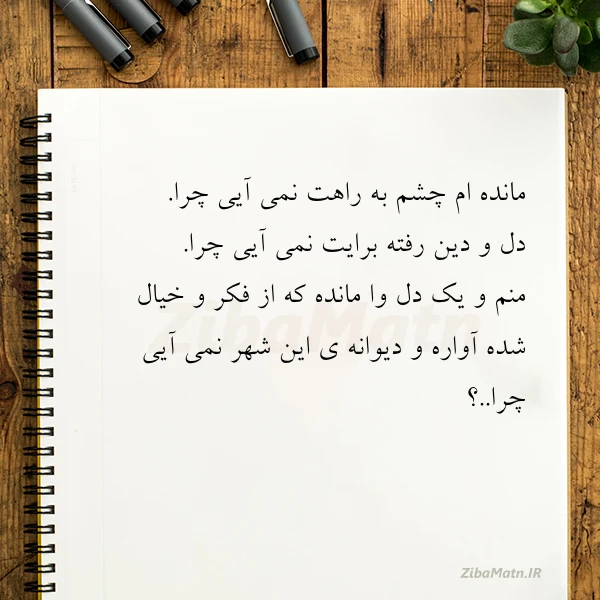 مانده ام چشم به راهت نمی آیی چرا.
دل و دین رفته برایت نمی آیی چرا.
منم و یک دل وا مانده که از فکر و خیال
شده آواره و دیوانه ی این شهر نمی آیی
چرا..؟
ZibaMatn
ZibaMatn.IR